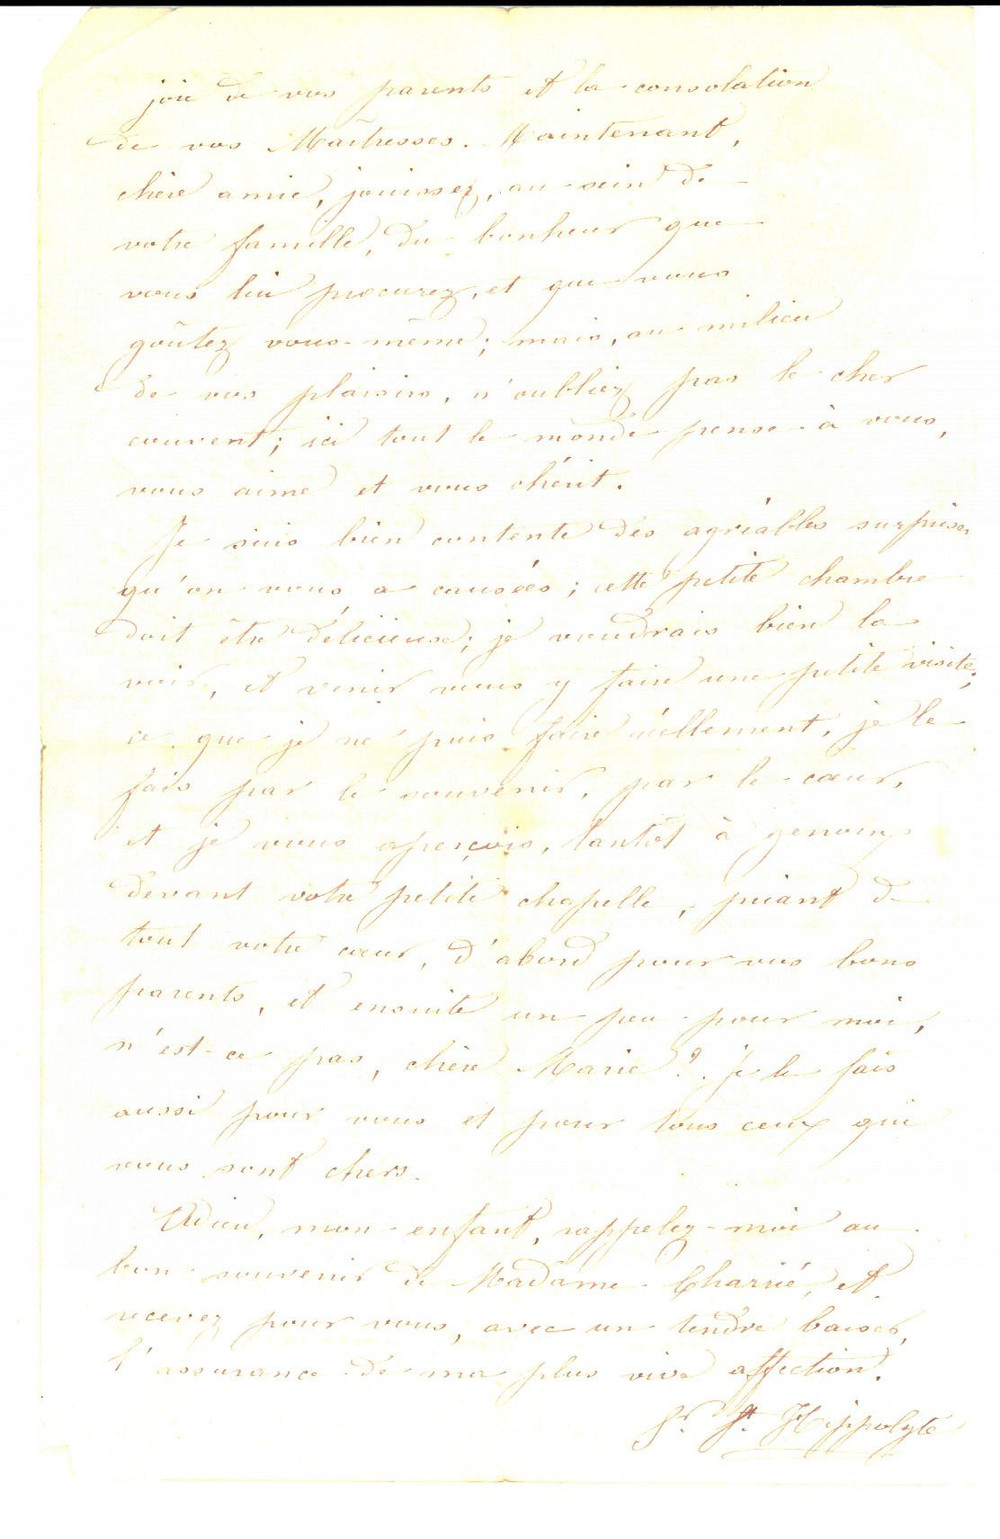 joie de vos parents et la consolation
de vos Maîtresses. Maintenant,
chère amie, jouissez, au sein de
votre famille, du bonheur que
vous lui procurez, et que vous
goûtez vous-même; mais, au milieu
de vos plaisirs, n'oubliez pas le cher
couvent; ici tout le monde pense à vous,
vous aime et vous chérit.
Je suis bien contente des agréables surprises
qu'on vous a causées; cette petite chambre
doit être délicieuse; je voudrais bien la
voir, et venir vous y faire une petite visite;
ce que je ne puis faire réellement, je le
fais par le souvenir, par le cœur,
et je vous aperçois, tantôt à genoux
devant votre petite chapelle, priant de
tout votre cœur, d'abord pour vos bons
parents, et ensuite un peu pour moi,
n'est-ce pas, chère Marie? Je le fais
aussi pour vous et pour tous ceux qui
vous sont chers.
Adieu, mon enfant, rappelez-moi au
bon souvenir de Madame Charié, et
recevez pour vous, avec un tendre baiser,
l'assurance de ma plus vive affection.
Sr. St. Hippolyte